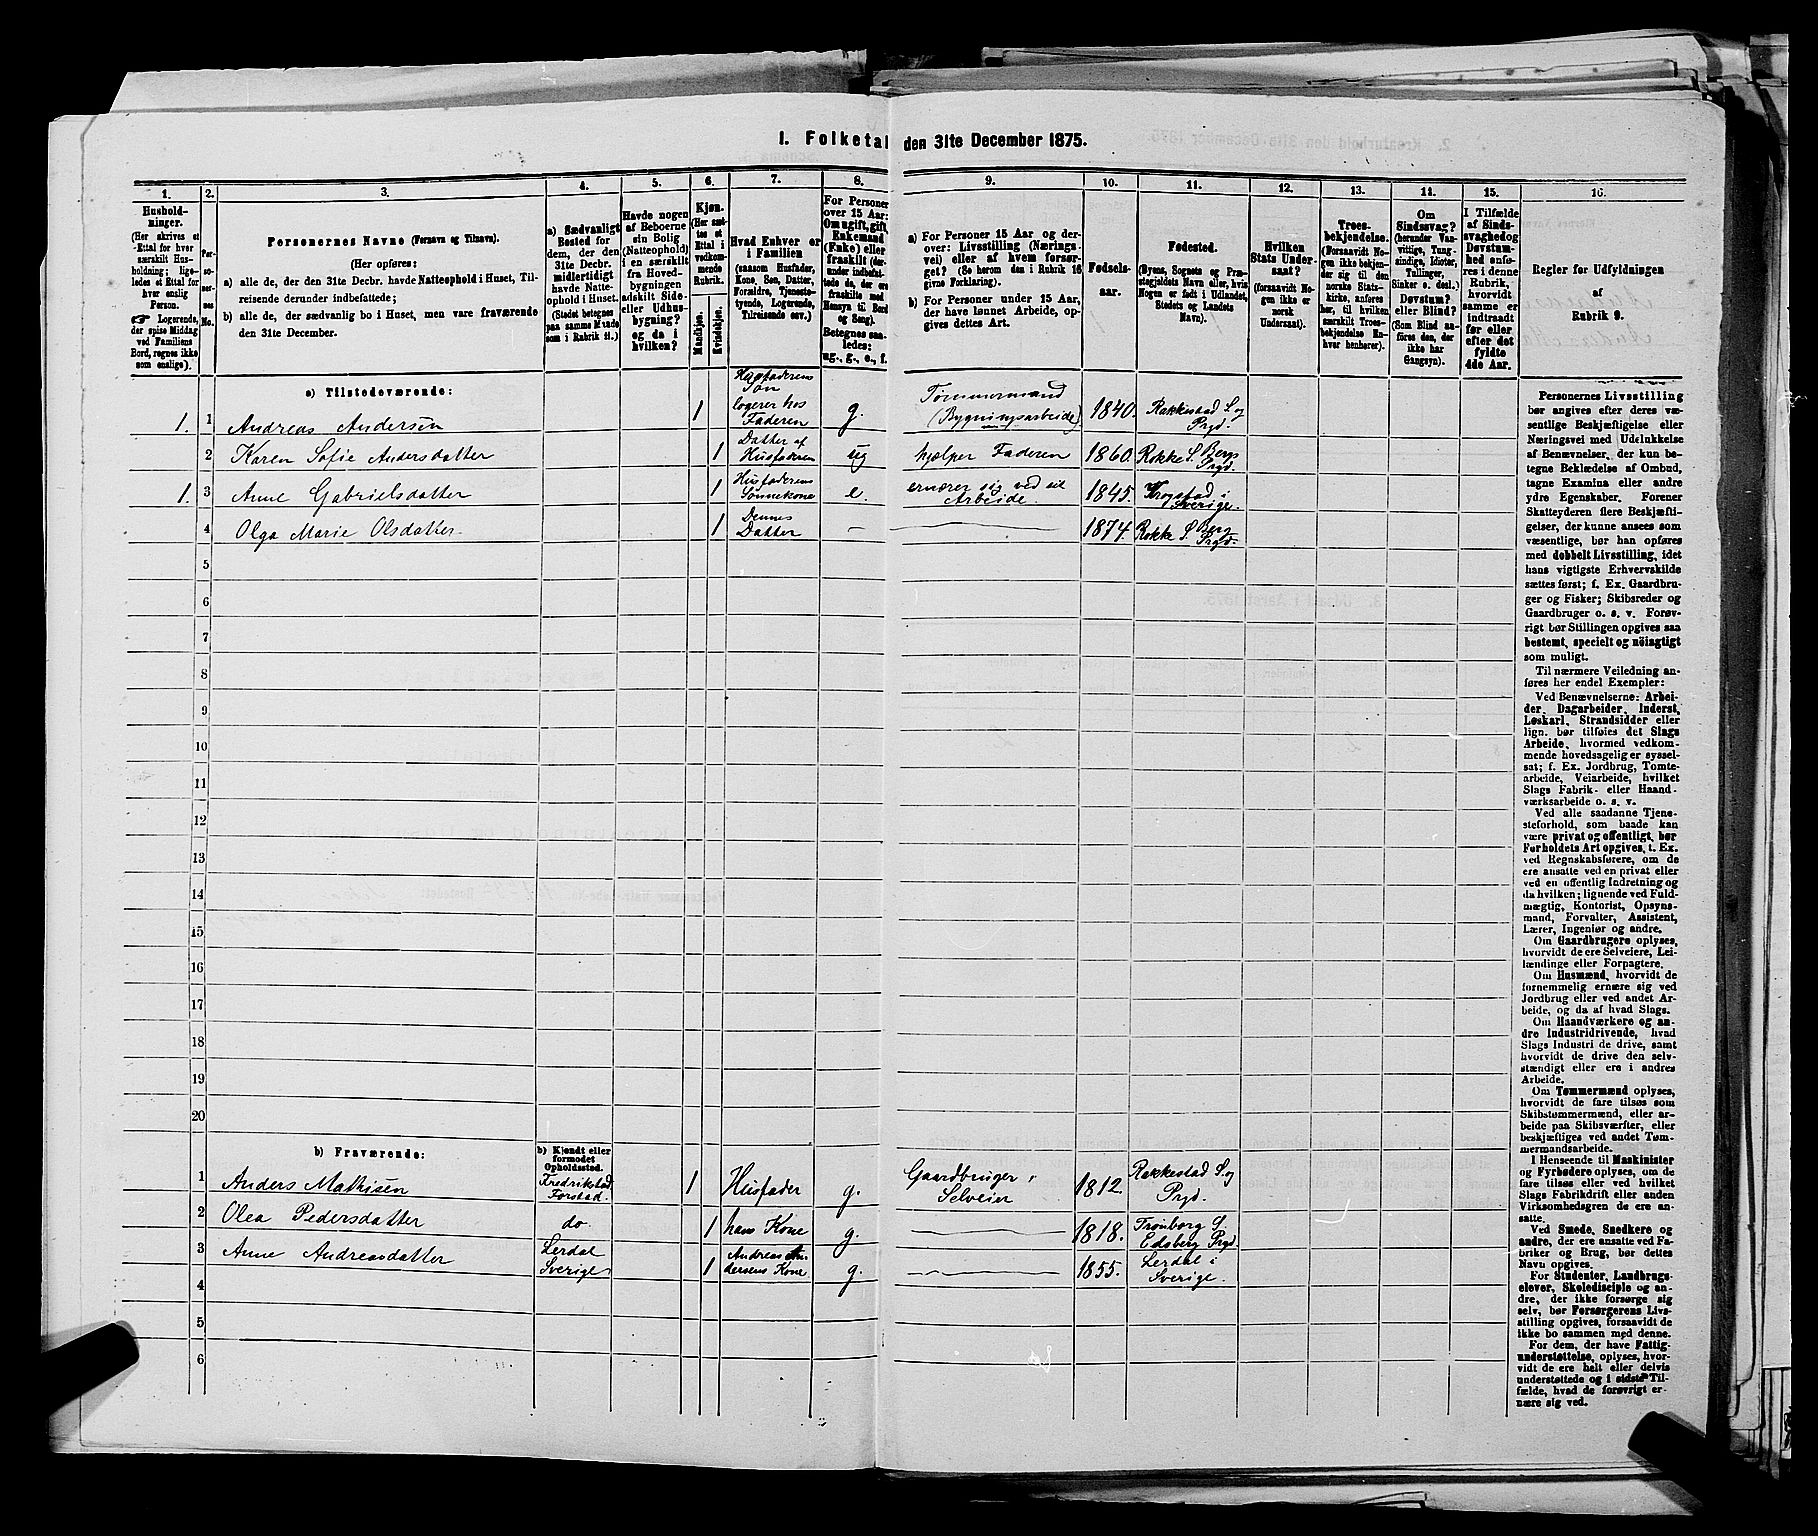 1. Folketal den 31te December 1875.
1.
2.
3.
4.
5.
6.
7.
8.
9.
10.
11.
12.
13.
14.
15.
16.
Hushold-
ninger.
(Her skrives et
Ettal for hver
særskilt Hus-
holdning; lige-
ledes et Ettal for
hver enslig
Person.
☞ Logerende,
der spise Middag
ved Familiens
Bord, regnes ikke
som enslige).
Per-
so-
ner-
nes
No.
Personernes Navne (Fornavn og Tilnavn).
(Her opføres:
a) alle de, der den 31te Decbr. havde Natteophold i Huset, Til-
reisende derunder indbefattede;
b) alle de, der sædvanlig bo i Huset, men vare fraværende
den 31te December.
a) Sædvanligt
Bosted for
dem, der den
31te Decbr.
midlertidigt
havde Natte-
ophold i Huset.
(Stedet betegnes
paa samme Maade
som i Rubrik 11.)
Havde nogen
af Beboerne
sin Bolig
(Natteophold)
i en særskilt
fra Hoved-
bygningen
adskilt Side-
eller Udhus-
bygning?
og da i
hvilken?
Kjøn.
(Her sæt-
tes et
Ettal i
vedkom-
mende
Rubrik.
Mandkjøn.
Kvindekjøn.
Hvad Enhver er
i Familien
(saasom Husfader,
Kone, Søn, Datter,
Forældre, Tjeneste-
tyende, Logerende,
Tilreisende osv.)
For Personer
over 15 Aar:
Om ugift, gift,
Enkemand
(Enke) eller
fraskilt (der-
under indbefat-
tede de, der ere
fraskilte med
Hensyn til Bord
og Seng).
Betegnes saa-
ledes:
ug., g., e., f.
a) For Personer 15 Aar og der-
over: Livsstilling (Nærings-
vei) eller af hvem forsør-
get? (Se herom den i Rubrik 16
givne Forklaring).
b) For Personer under 15 Aar,
der have lønnet Arbeide, op-
gives dettes Art.
Fødsels-
aar.
Fødested.
(Byens, Sognets og Præ-
stegjeldets Navn eller, hvis
Nogen er født i Udlandet,
Stedets og Landets
Navn).
Hvilken
Stats Under-
saat?
(forsaavidt No-
gen ikke er
norsk
Undersaat).
Troes-
bekjendelse.
(Forsaavidt No-
gen ikke bekjen-
der sig til den
norske Stats-
kirke, anføres
her, til hvilken
særskilt Troes-
bekjendelse En-
hver henhører).
Om
Sindssvag?
(herunder Van-
vittige, Tung-
sindige, Idioter,
Tullinger,
Sinker o. desl.)
Døvstum?
eller Blind?
(Som Blind an-
føres den, der
ikke har
Gangsyn).
I Tilfælde
af Sinds-
svaghed og
Døvstum-
hed anfø-
res i denne
Rubrik,
hvorvidt
samme er
indtraadt
før eller
efter det
fyldte
4de Aar.
Regler for Udfyldningen
af
Rubrik 9.
a) Tilstedeværende:
1. 1 Andreas Andersen 1 Husfaderens Søn logerer hos Faderen g. Tømmermand (Bygningsarbeide) 1840. Rakkestad S. og Prgd.
2 Karen Sofie Andersdatter 1 Datter af Husfaderen ug hjelper Faderen 1860. Rokke S. Berg Prgd.
1. 3 Anne Gabrielsdatter 1 Husfaderens Sønnekone e. ernærer sig ved sit Arbeide. 1845. Krogstad i Sverige.
4 Olga Marie Olsdatter 1 Dennes Datter — 1874. Rokke S. Berg Prgd.
5
6
7
8
9
10
11
12
13
14
15
16
17
18
19
20
b) Fraværende:
b) Kjendt eller
formodet
Opholdssted.
1 Anders Mathisen Fredrikstad Forstad. 1 Husfader g. Gaardbruger, Selveier 1812. Rakkestad S. og Prgd.
2 Olea Pedersdatter do. 1 hans Kone g. 1818. Trømborg S. Edsberg Prgd.
3 Anne Andreasdatter Lerdal Sverige 1 Andreas Andersens Kone g. 1855. Lerdal i Sverige.
4
5
6
Personernes Livsstilling
bør angives efter deres væ-
sentlige Beskjæftigelse eller
Næringsvei med Udelukkelse
af Benævnelser, der kun be-
tegne Beklædelse af Ombud,
tagne Examina eller andre
ydre Egenskaber. Forener
Skatteyderen flere Beskjæfti-
gelser, der kunne ansees som
væsentlige, bør han opføres
med dobbelt Livsstilling, idet
hans vigtigste Erhvervskilde
sættes først; f. Ex. Gaardbru-
ger og Fisker; Skibsreder og
Gaardbruger o. s. v. Forøv-
rigt bør Stillingen opgives saa
bestemt, specielt og nöiagtigt
som muligt.
Til nærmere Veiledning an-
føres her endel Exempler:
Ved Benævnelserne: Arbei-
der, Dagarbeider, Inderst,
Løskarl, Strandsidder eller
lign. bør tilføies det Slags
Arbeide, hvormed vedkom-
mende hovedsagelig er syssel-
sat; f. Ex. Jordbrug, Tomte-
arbeide, Veiarbeide, hvilket
Slags Fabrik- eller Haand-
værksarbeide o. s. v.
Ved alle saadanne Tjene-
steforhold, som baade kan
være privat og offentligt, bør
Forholdets Art opgives, t. Ex.
ved Regnskabsførere, om de
ere ansatte ved en privat eller
ved en offentlig Indretning og
da hvilken; lignende ved Fuld-
mægtig, Kontorist, Opsyns-
mand, Forvalter, Assistent,
Lærer, Ingeniør og andre.
Om Gaardbrugere oplyses,
hvorvidt de ere Selveiere, Lei-
lændinge eller Forpagtere.
Om Husmænd, hvorvidt de
fornemmelig ernære sig ved
Jordbrug eller ved andet Ar-
beide, og da af hvad Slags.
Om Haandværkere og an-
dre Industridrivende, hvad
Slags Industri de drive, samt
hvorvidt de drive den selv-
stændigt eller ere i andres
Arbeide.
Om Tømmermænd oplyses,
hvorvidt de fare tilsøs som
Skibstømmermænd, eller ar-
beide paa Skibsværfter, eller
beskjæftiges ved andet Tøm-
mermandsarbeide.
I Henseende til Maskinister
og Fyrbødere oplyses, om de
fare tilsøs eller ved hvilket
Slags Fabrikdrift eller anden
Virksomhedsgren de ere an-
satte.
Ved Smede, Snedkere og
andre, der ere ansatte ved Fa-
briker og Brug, bør dettes
Navn opgives.
For Studenter, Landbrugs-
elever, Skoledisciple og an-
dre, der ikke forsørge sig
selv, bør Forsørgerens Livs-
stilling opgives, forsaavidt de
ikke bo sammen med denne.
For dem, der have Fattig-
understøttelse, oplyses, hvor-
vidt de ere helt eller delvis
understøttede og i sidste Til-
fælde, hvad de forøvrigt er-
nære sig ved.